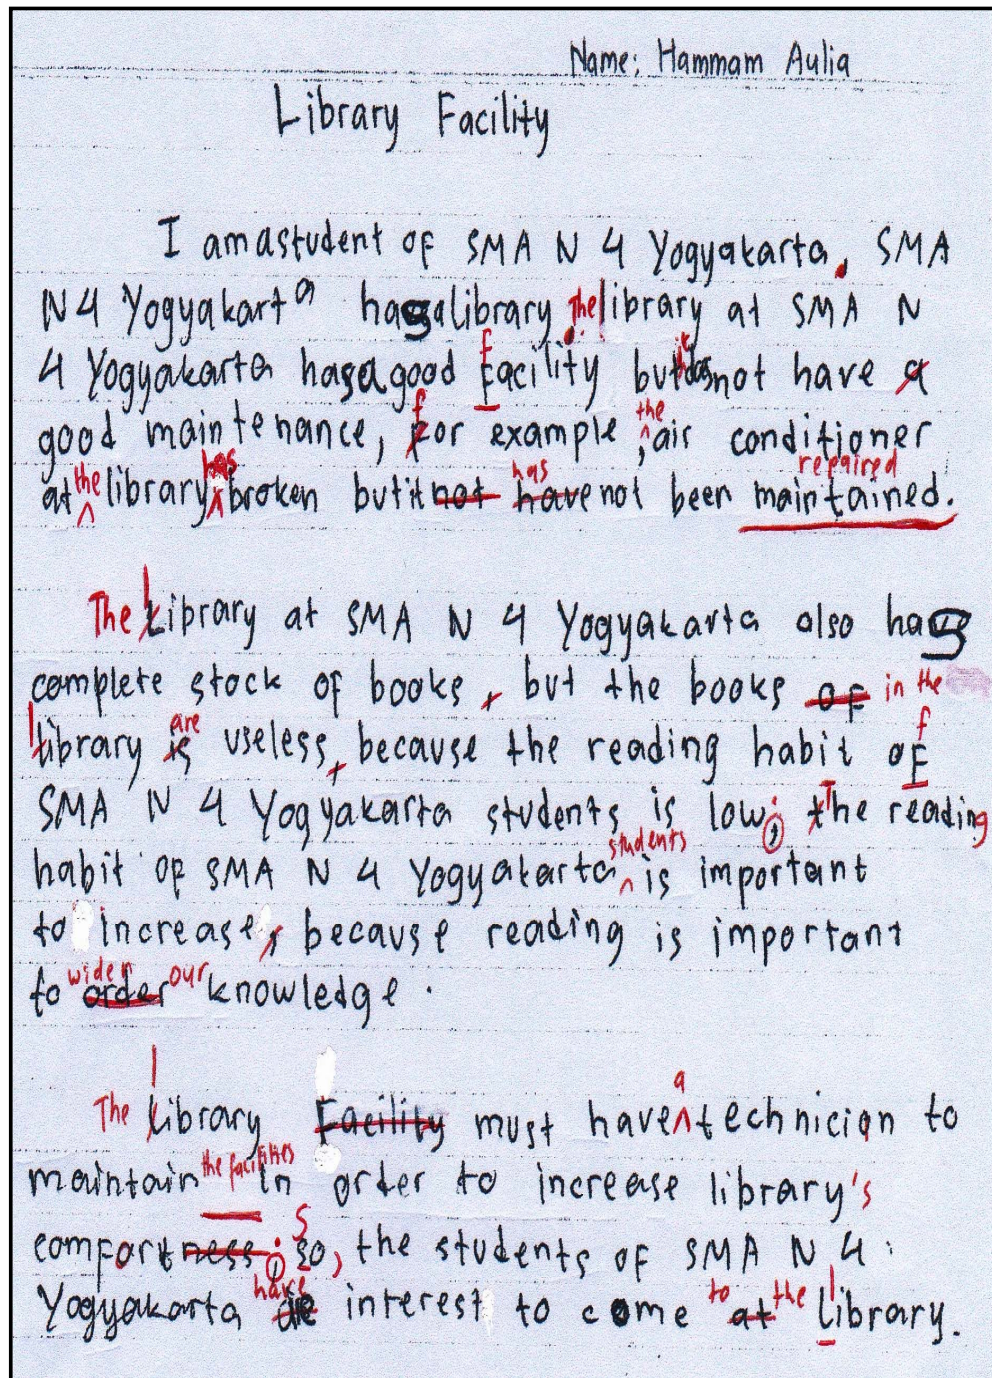 Name: Hammam Aulia
Library Facility
I am a student of SMA N 4 Yogyakarta. SMA
N 4 Yogyakarta has a library. The library at SMA N
f
4 Yogyakarta has a good Facility but it does not have a
f the
good maintenance, For example, air conditioner
the has has repaired
at library broken but it not have not been maintained.
The l Library at SMA N 4 Yogyakarta also has
complete stock of books, but the books of in the
l are f
Library is useless, because the reading habit oF
SMA N 4 Yogyakarta students is low. , T the reading
students
habit of SMA N 4 Yogyakarta is important
to increase, because reading is important
widen our
to order knowledge.
a
The l Library Facility must have technician to
the facilities
maintain in order to increase library's
S
comfortness. , so, the students of SMA N 4
have to the l
Yogyakarta are interest to come at library.